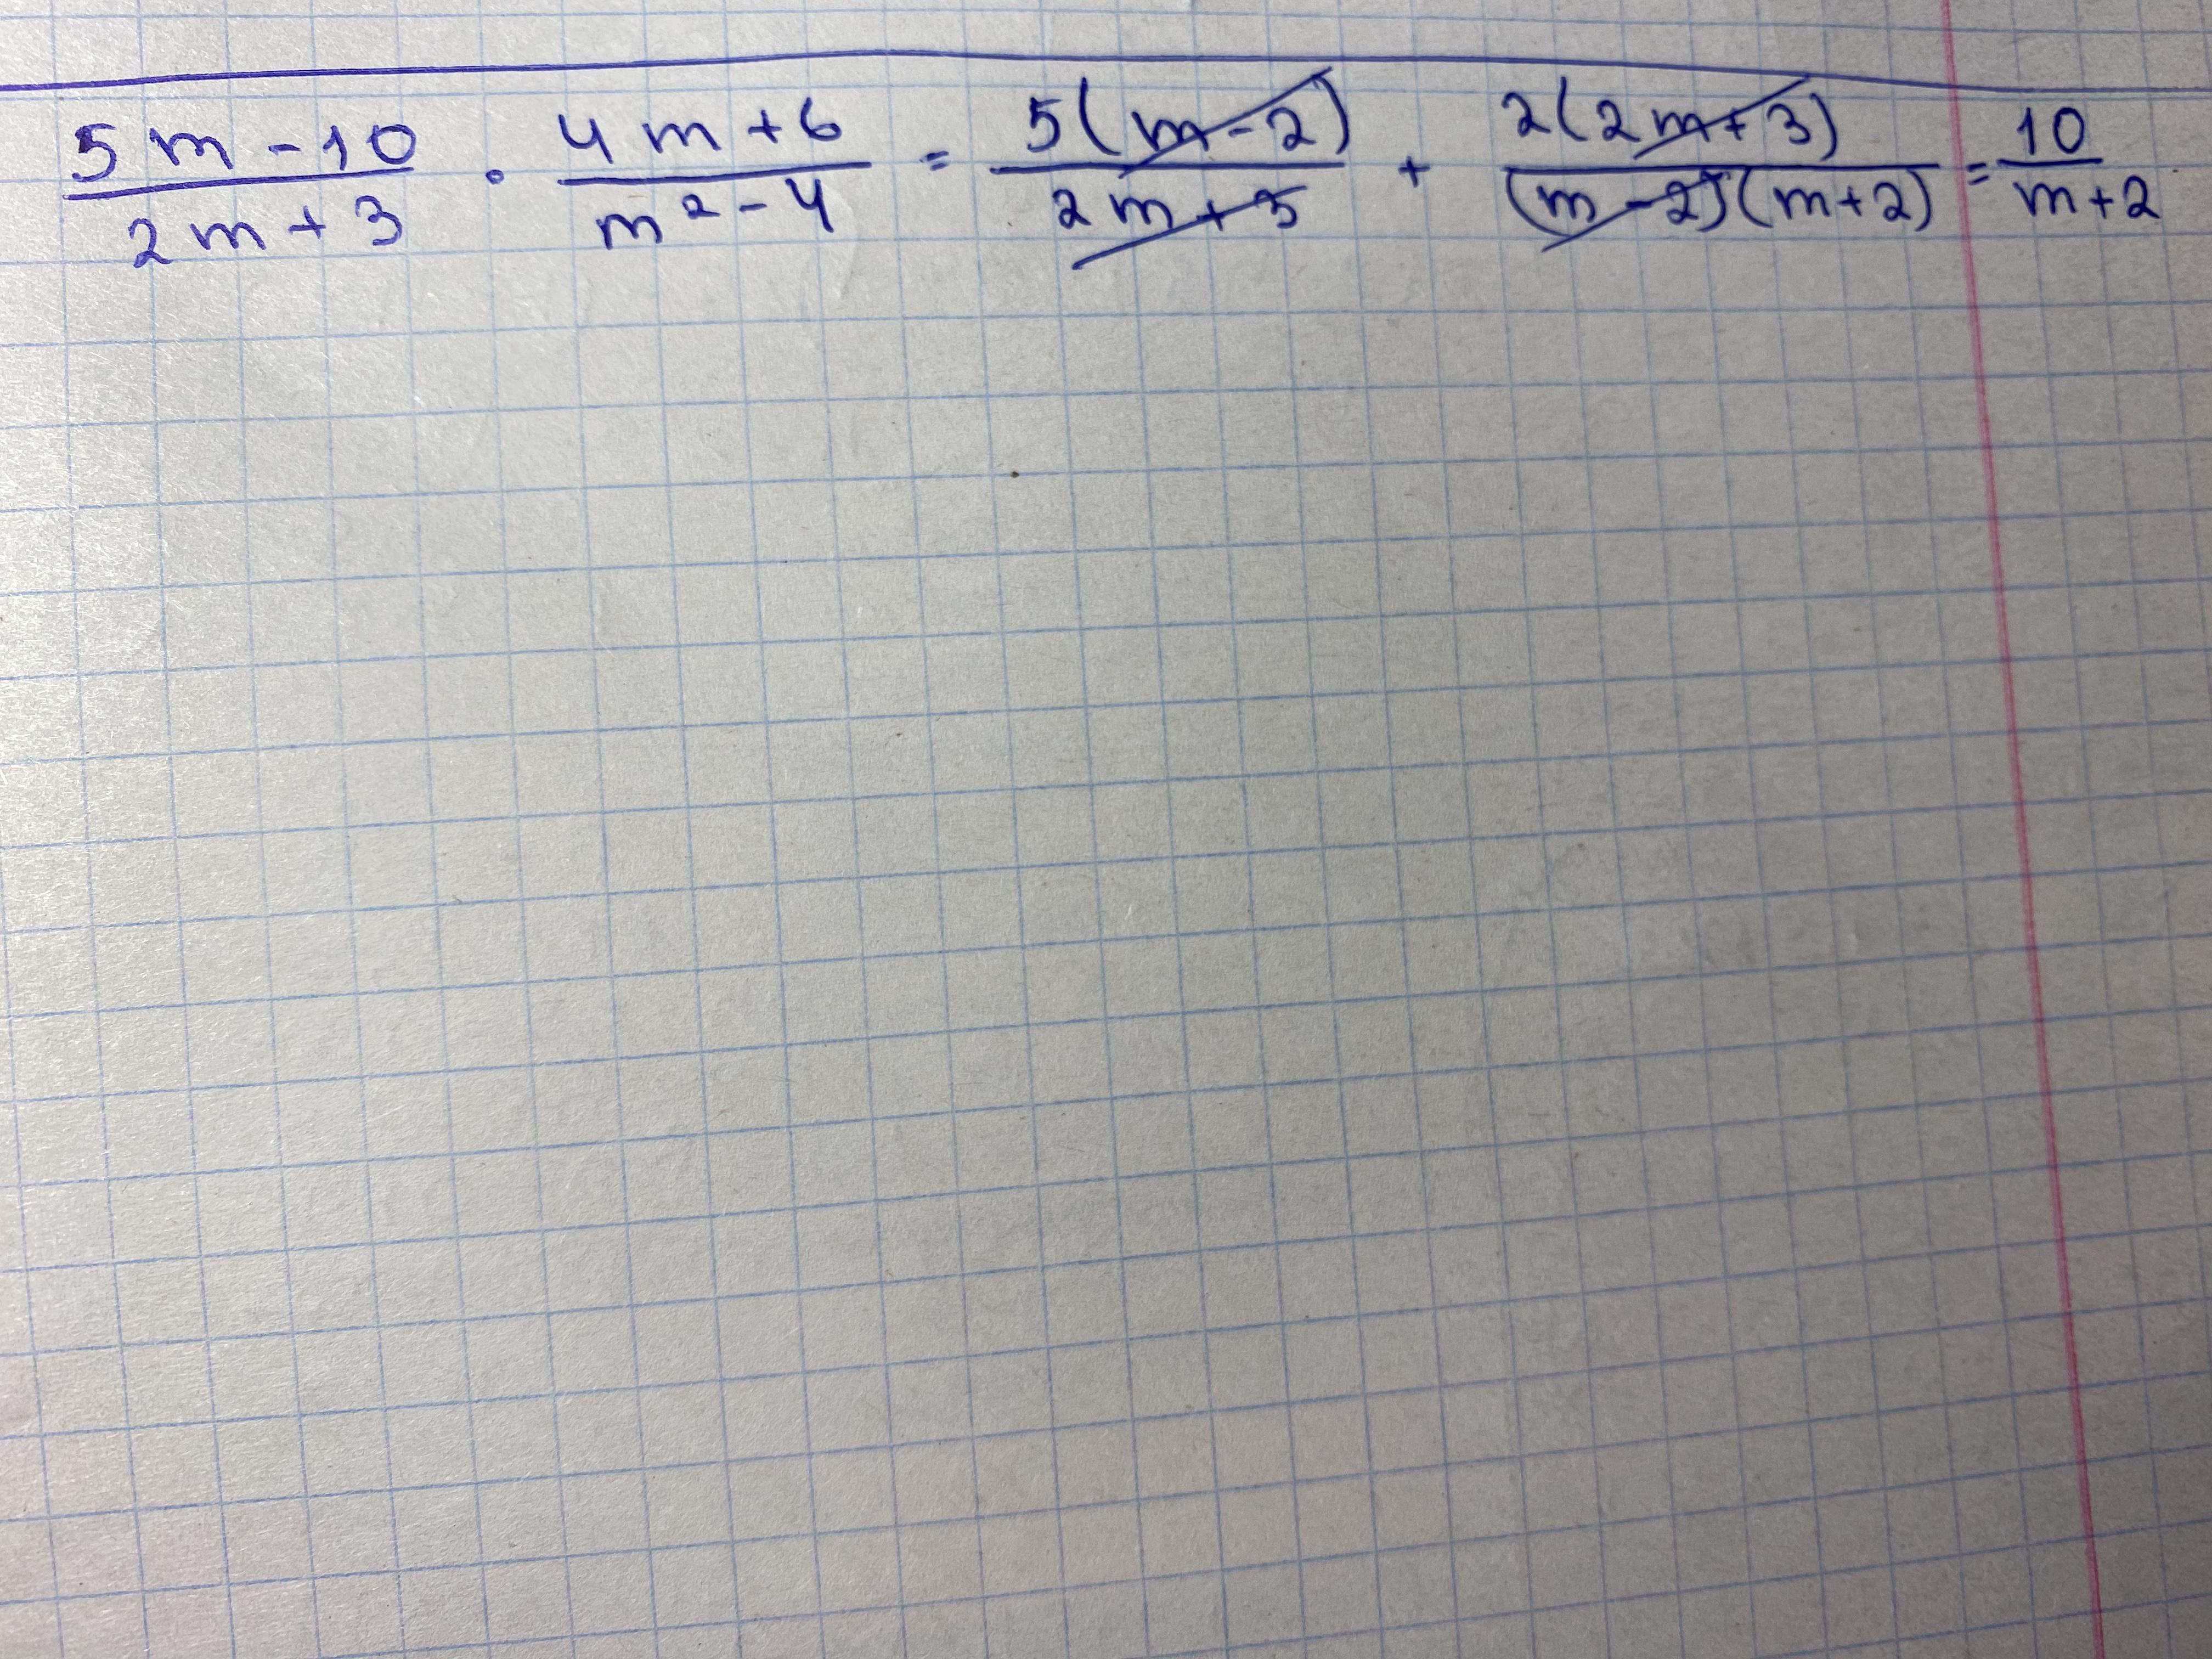 (5m-10)/(2m+3) · (4m+6)/(m²-4) = 5(m-2)/(2m+3) + 2(2m+3)/((m-2)(m+2)) = 10/(m+2)